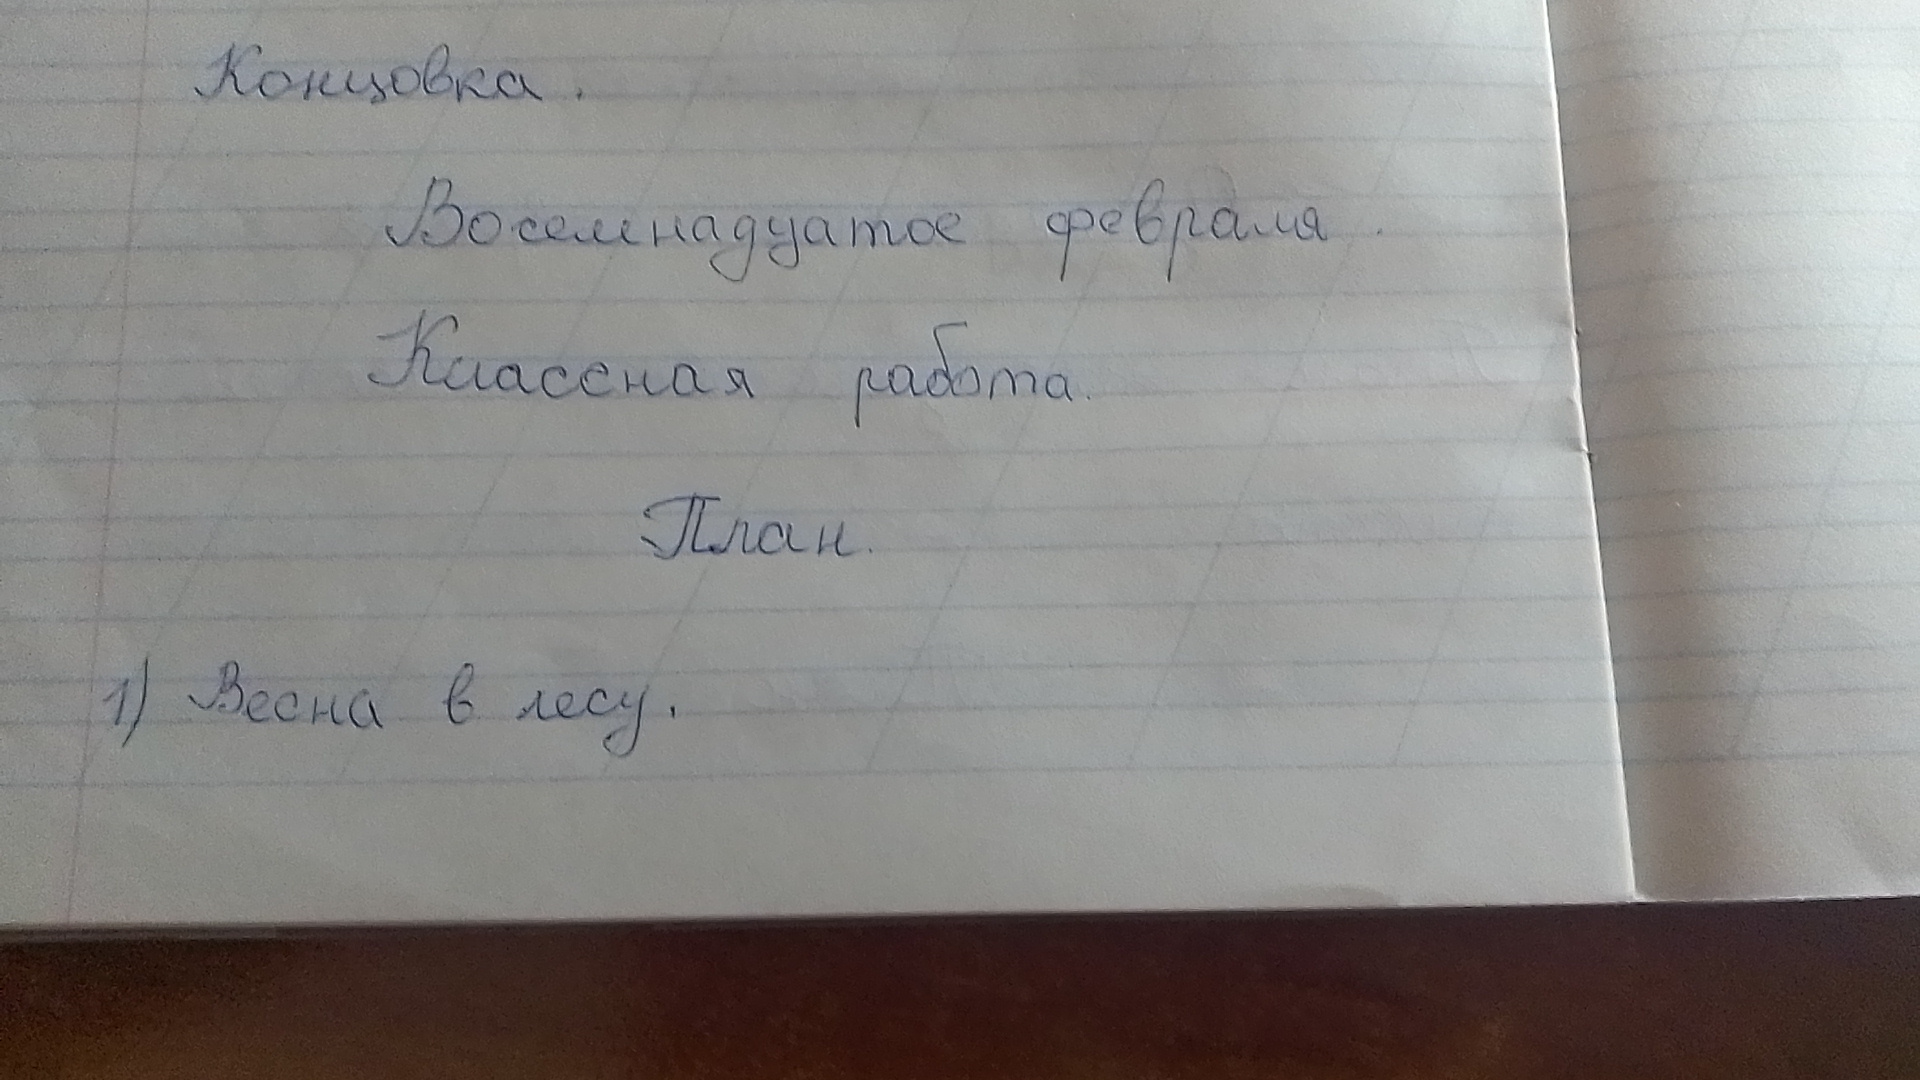 Концовка.
Восемнадцатое февраля.
Классная работа.
План.
1) Весна в лесу.